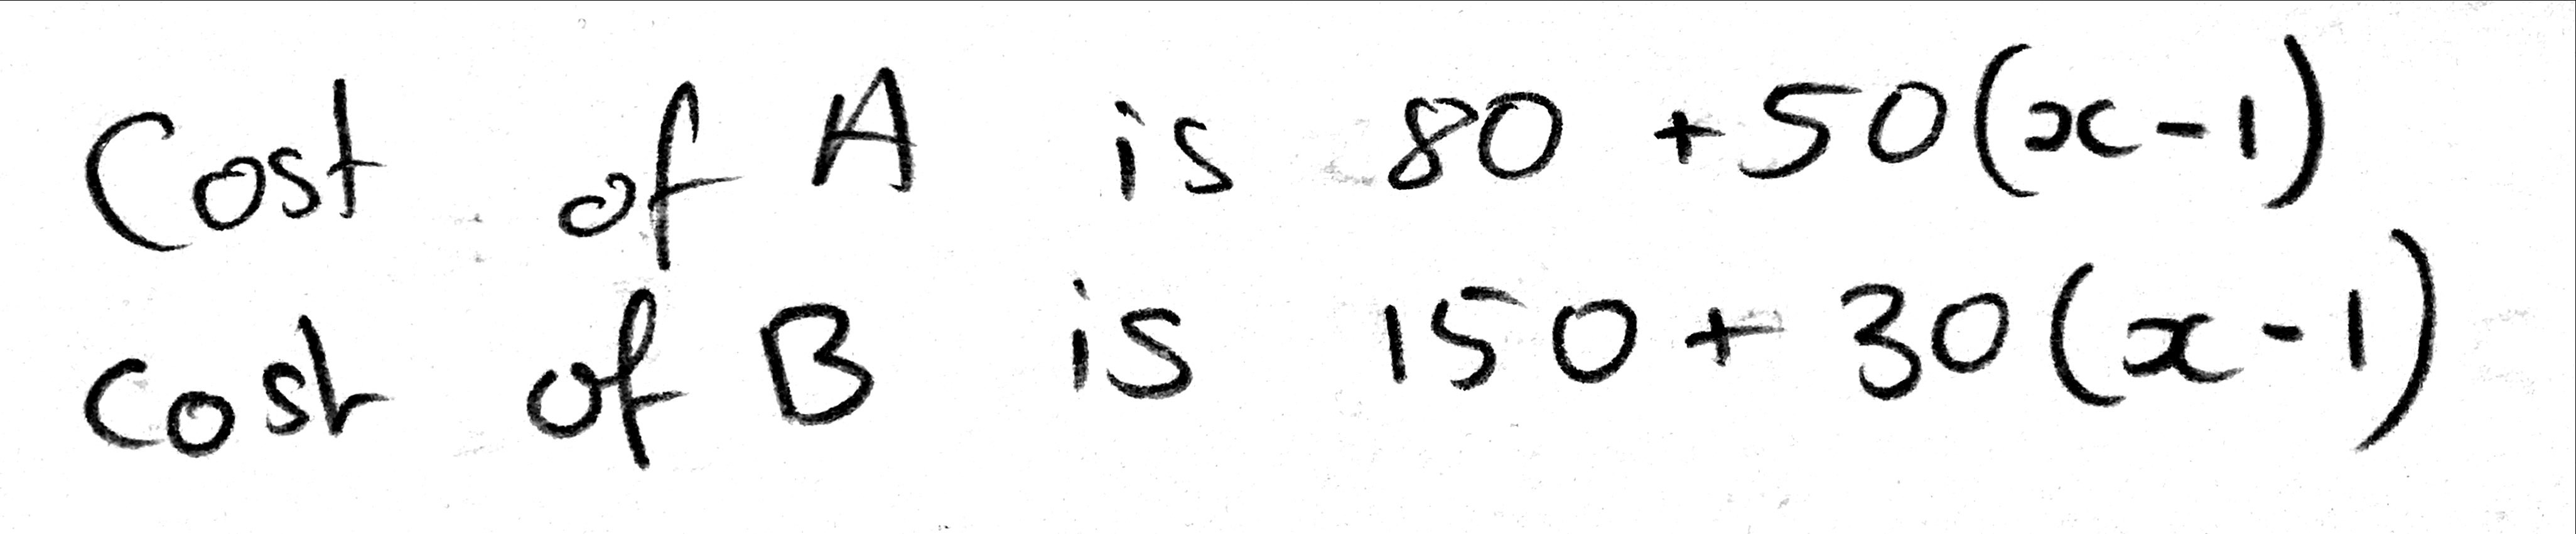 Cost of A is 80 +50(x-1)
Cost of B is 150 + 30(x-1)